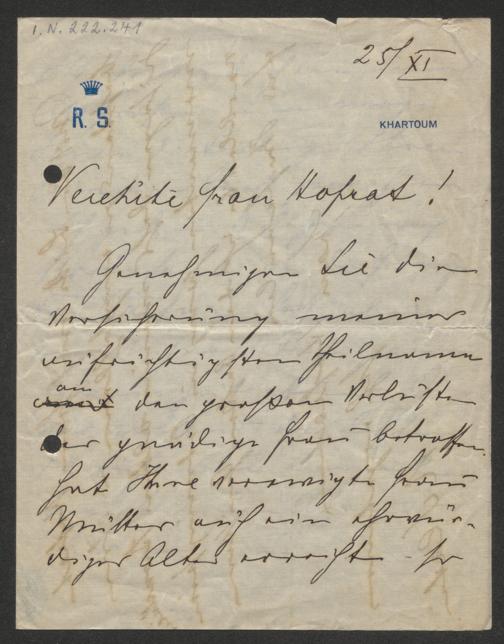 I. N. 222.241
25/XI
R. S.
KHARTOUM
Verehrte Frau Hofrat!
Genehmigen Sie die
Versicherung meiner
aufrichtigsten Theilname
am den großen Verluste
der gnädige Frau betroffen.
Hat Ihre verewigte Frau
Mutter auch ein ehrwür-
diges Alter erreicht - so